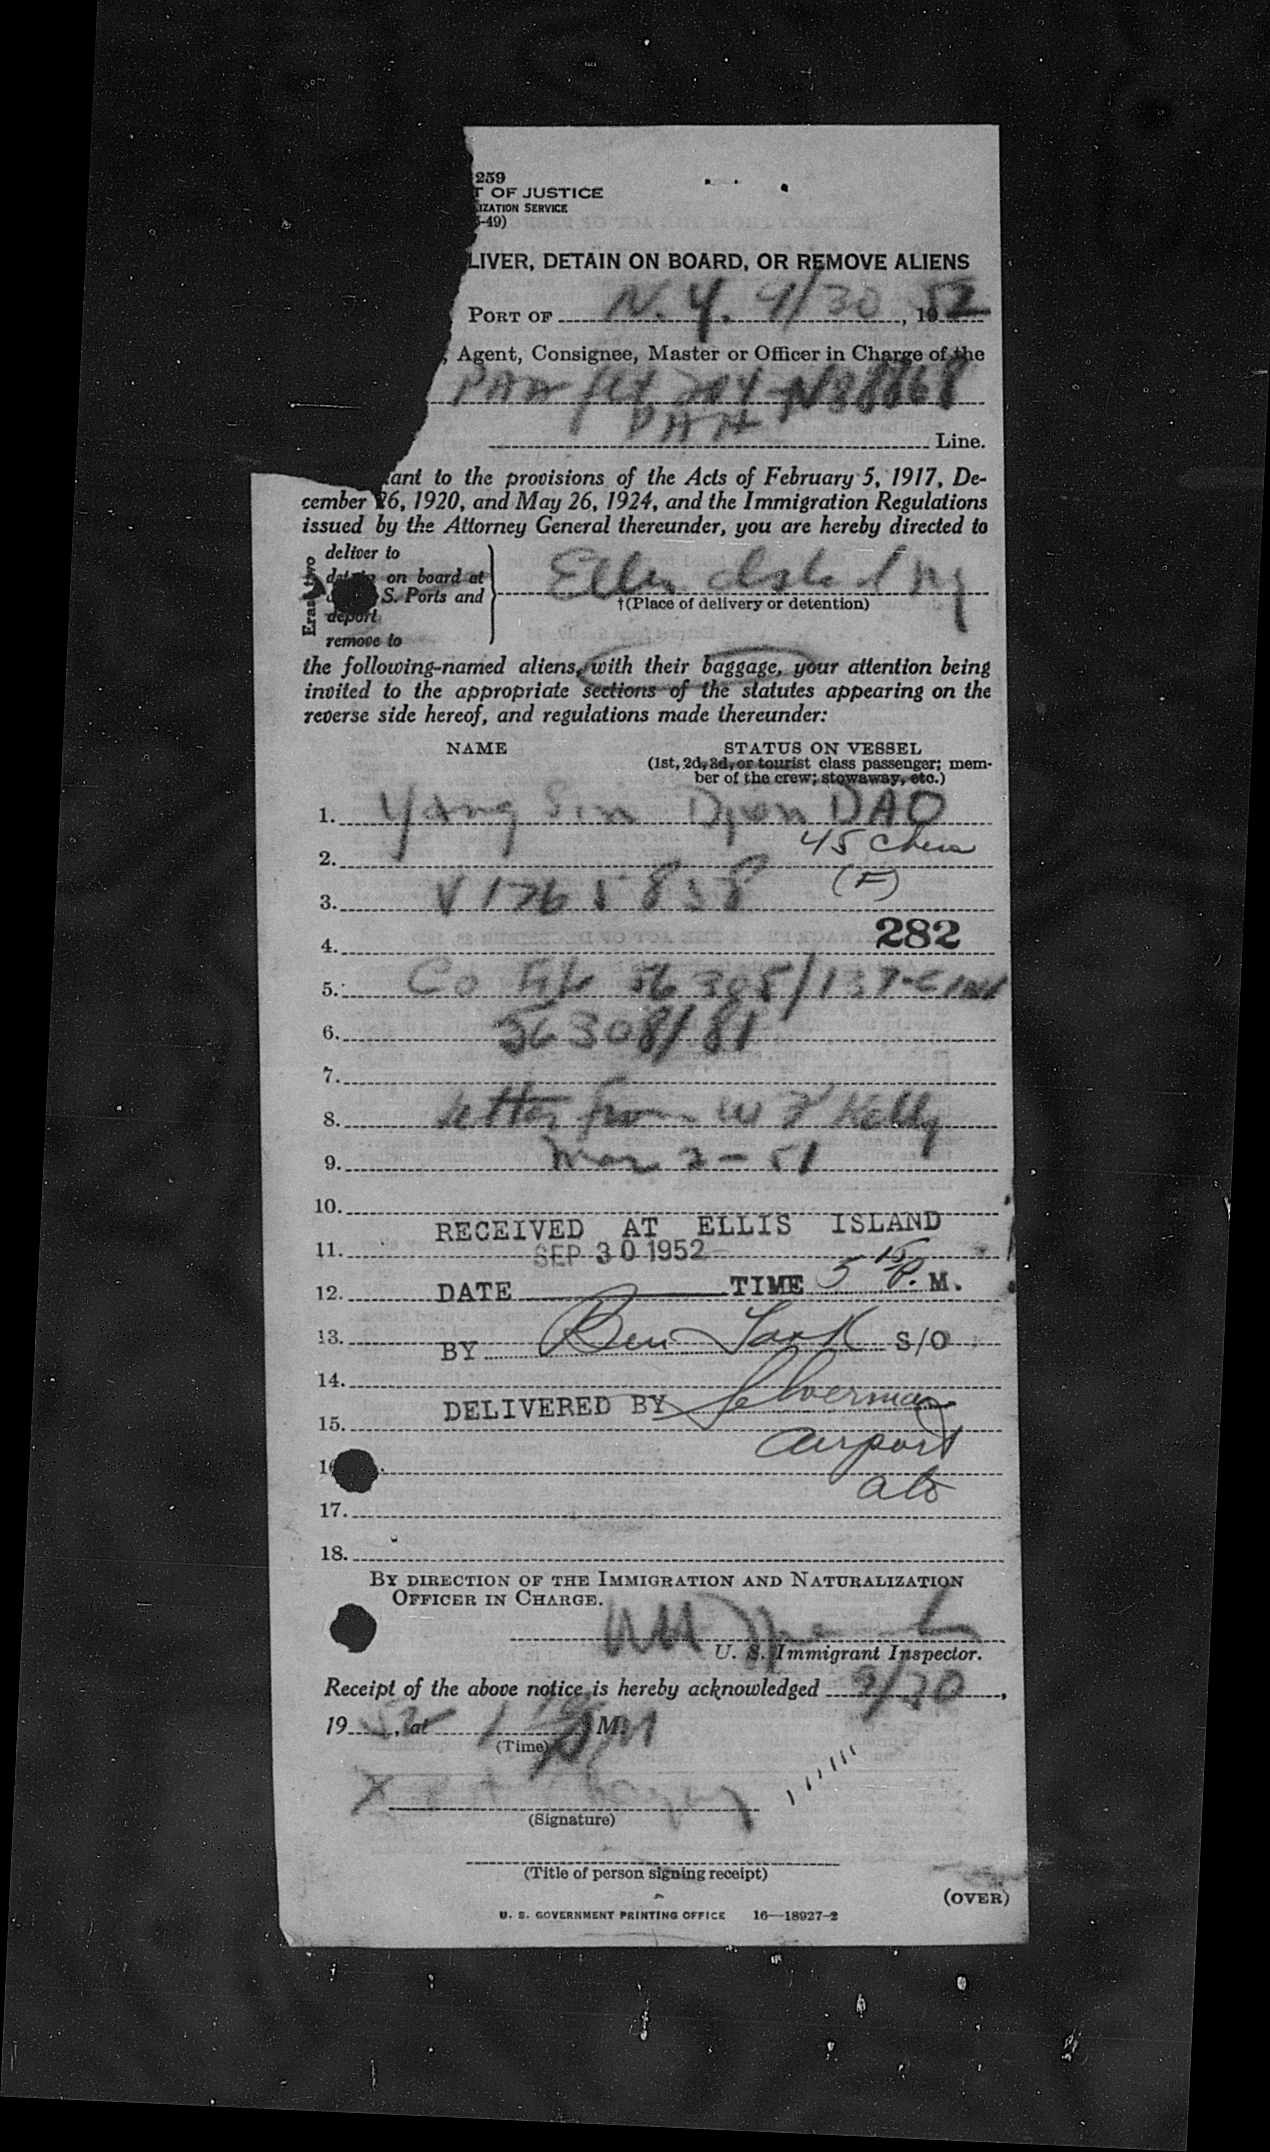 259
T OF JUSTICE
IZATION SERVICE
-49)
LIVER, DETAIN ON BOARD, OR REMOVE ALIENS
PORT OF N.Y. 9/30, 1952
, Agent, Consignee, Master or Officer in Charge of the
PAN N88868
PAN Line.
ant to the provisions of the Acts of February 5, 1917, De-
cember 26, 1920, and May 26, 1924, and the Immigration Regulations
issued by the Attorney General thereunder, you are hereby directed to
deliver to
on board at
S. Ports and
deport
remove to
Ellis Island NY
†(Place of delivery or detention)
the following-named aliens, with their baggage, your attention being
invited to the appropriate sections of the statutes appearing on the
reverse side hereof, and regulations made thereunder:
NAME STATUS ON VESSEL
(1st, 2d, 3d, or tourist class passenger; mem-
ber of the crew; stowaway, etc.)
1. Yang Sin DAO
2. 45
3. V1765838 (F)
4. 282
5. Co File 56305/137-
6. 56308/81
7.
8. letter from W F Kelly
9. Mar 2-51
10.
RECEIVED AT ELLIS ISLAND
11. SEP 30 1952
12. DATE TIME 5 15 P. M.
13. BY Ben S/O
14.
DELIVERED BY Silverman
15. airport
16.
17.
18.
BY DIRECTION OF THE IMMIGRATION AND NATURALIZATION
OFFICER IN CHARGE.
U. S. Immigrant Inspector.
Receipt of the above notice is hereby acknowledged 9/30,
1952, at 1 M.
(Time)
X
(Signature)
(Title of person signing receipt)
(OVER)
U. S. GOVERNMENT PRINTING OFFICE 16—18927-2